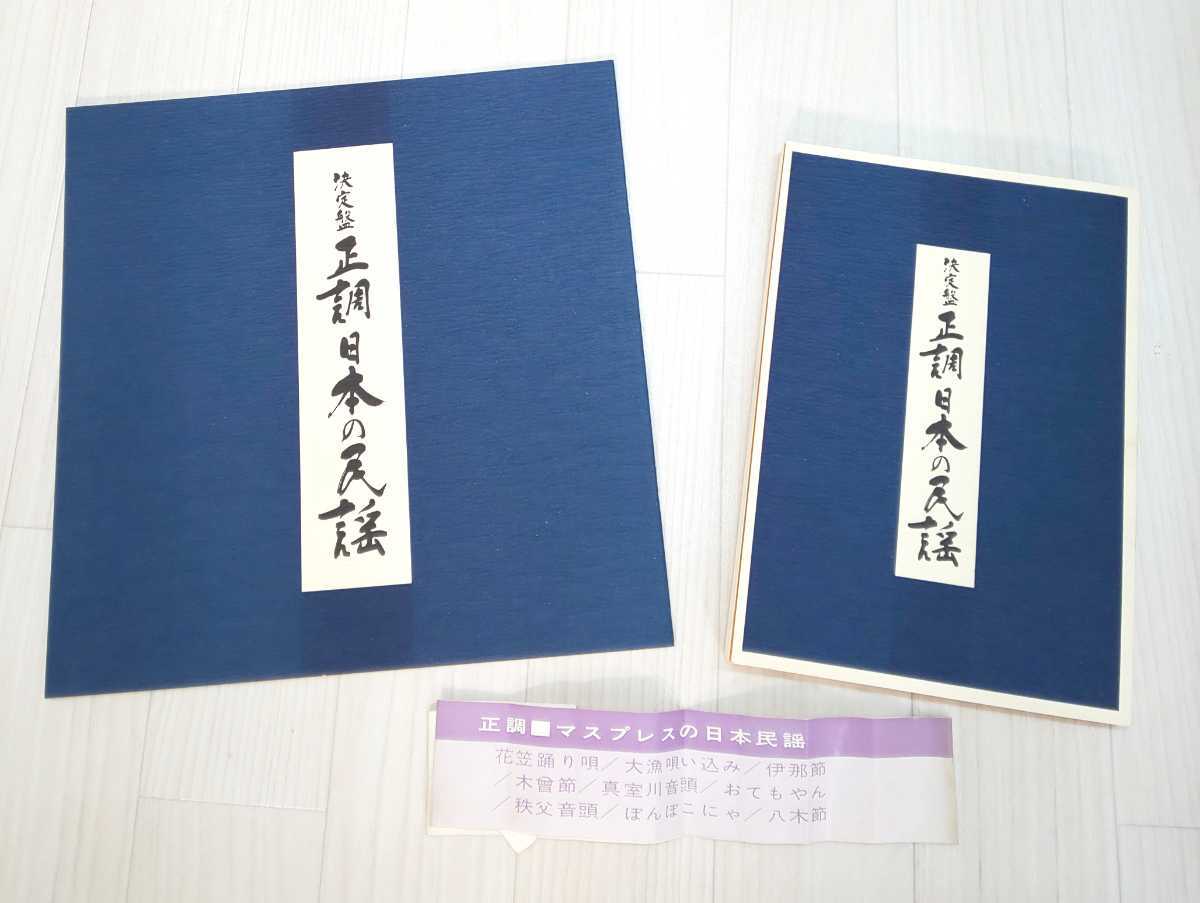 決定盤
正調日本の民謡
決定盤
正調日本の民謡
正調■マスプレスの日本民謡
花笠踊り唄／大漁唄い込み／伊那節
／木曾節／真室川音頭／おてもやん
／秩父音頭／ぽんぽこにゃ／八木節